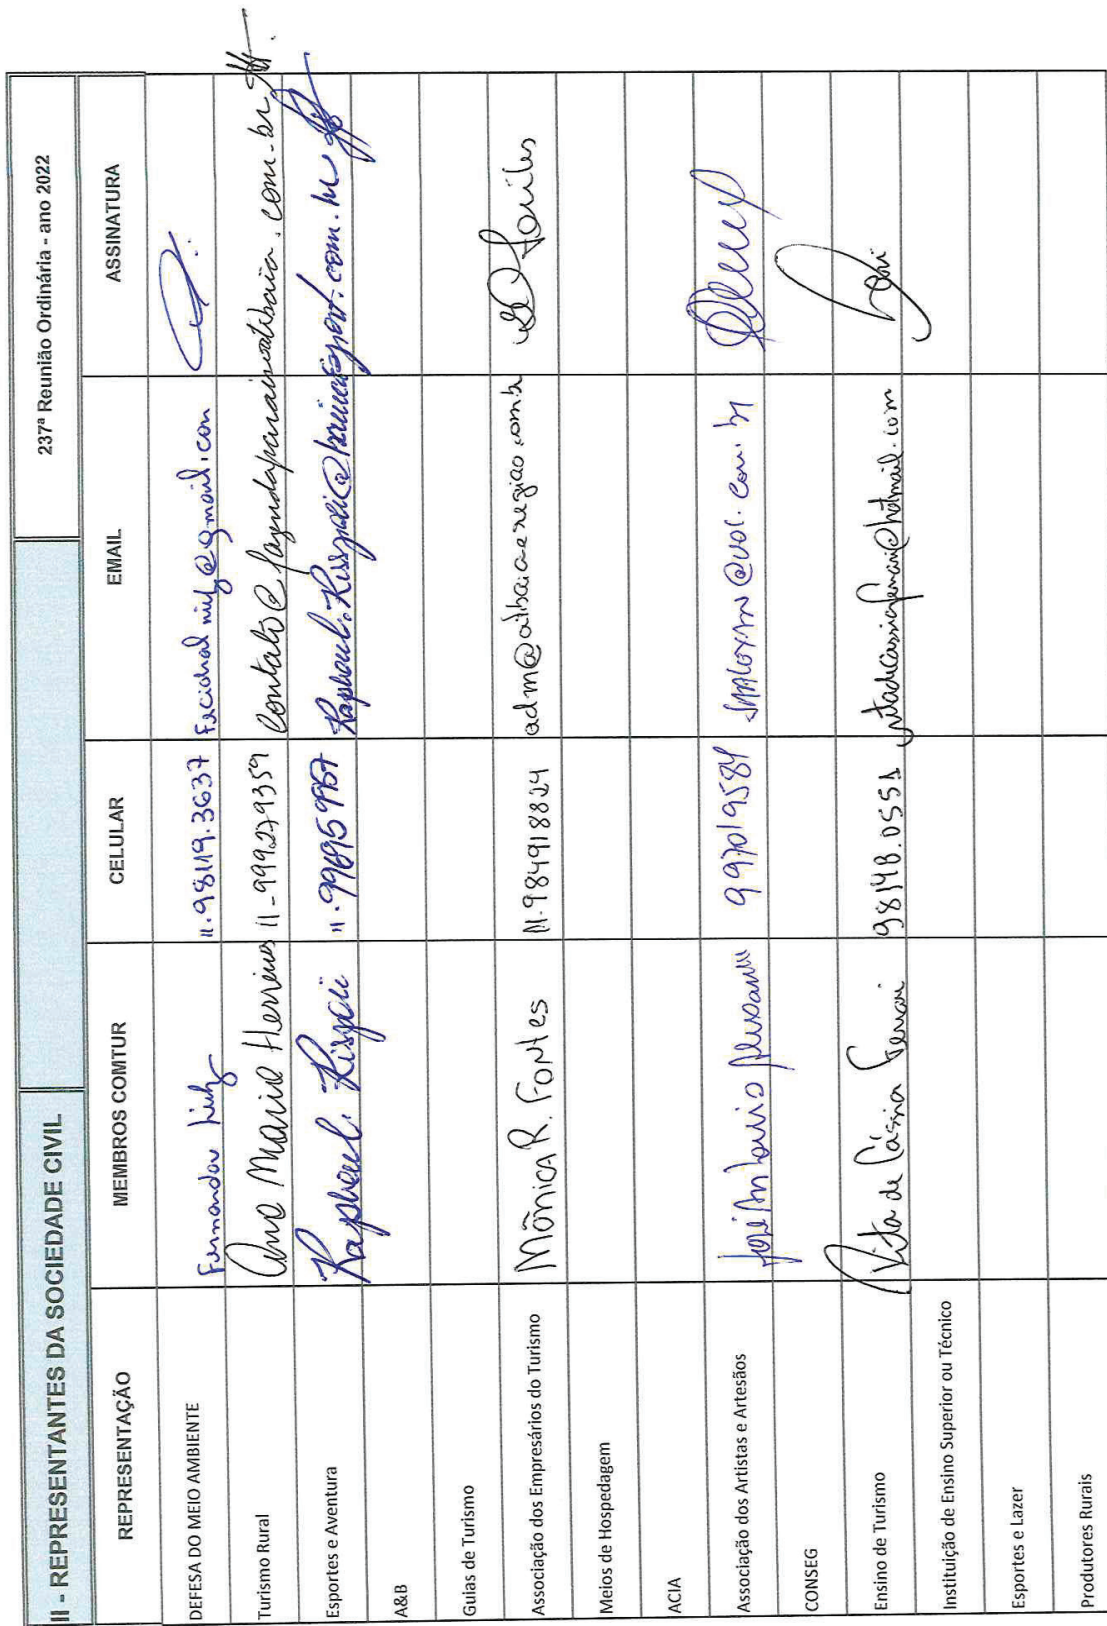 II - REPRESENTANTES DA SOCIEDADE CIVIL
237ª Reunião Ordinária - ano 2022
REPRESENTAÇÃO MEMBROS COMTUR CELULAR EMAIL ASSINATURA
DEFESA DO MEIO AMBIENTE Fernando 11.98119.3637
Turismo Rural Ana Maria Herreros 11-999279359 contato@fazendaparaisoatibaia.com.br
Esportes e Aventura Raphael 11.996959967
A&B
Guias de Turismo
Associação dos Empresários do Turismo Mônica R. Fontes 11.984918824 adm@atibaiaeregiao.com.br
Meios de Hospedagem
ACIA
Associação dos Artistas e Artesãos José Antonio 997019584
CONSEG
Ensino de Turismo Rita de Cássia Ferrari 98148.0551 ritadecassiaferrari@hotmail.com
Instituição de Ensino Superior ou Técnico
Esportes e Lazer
Produtores Rurais